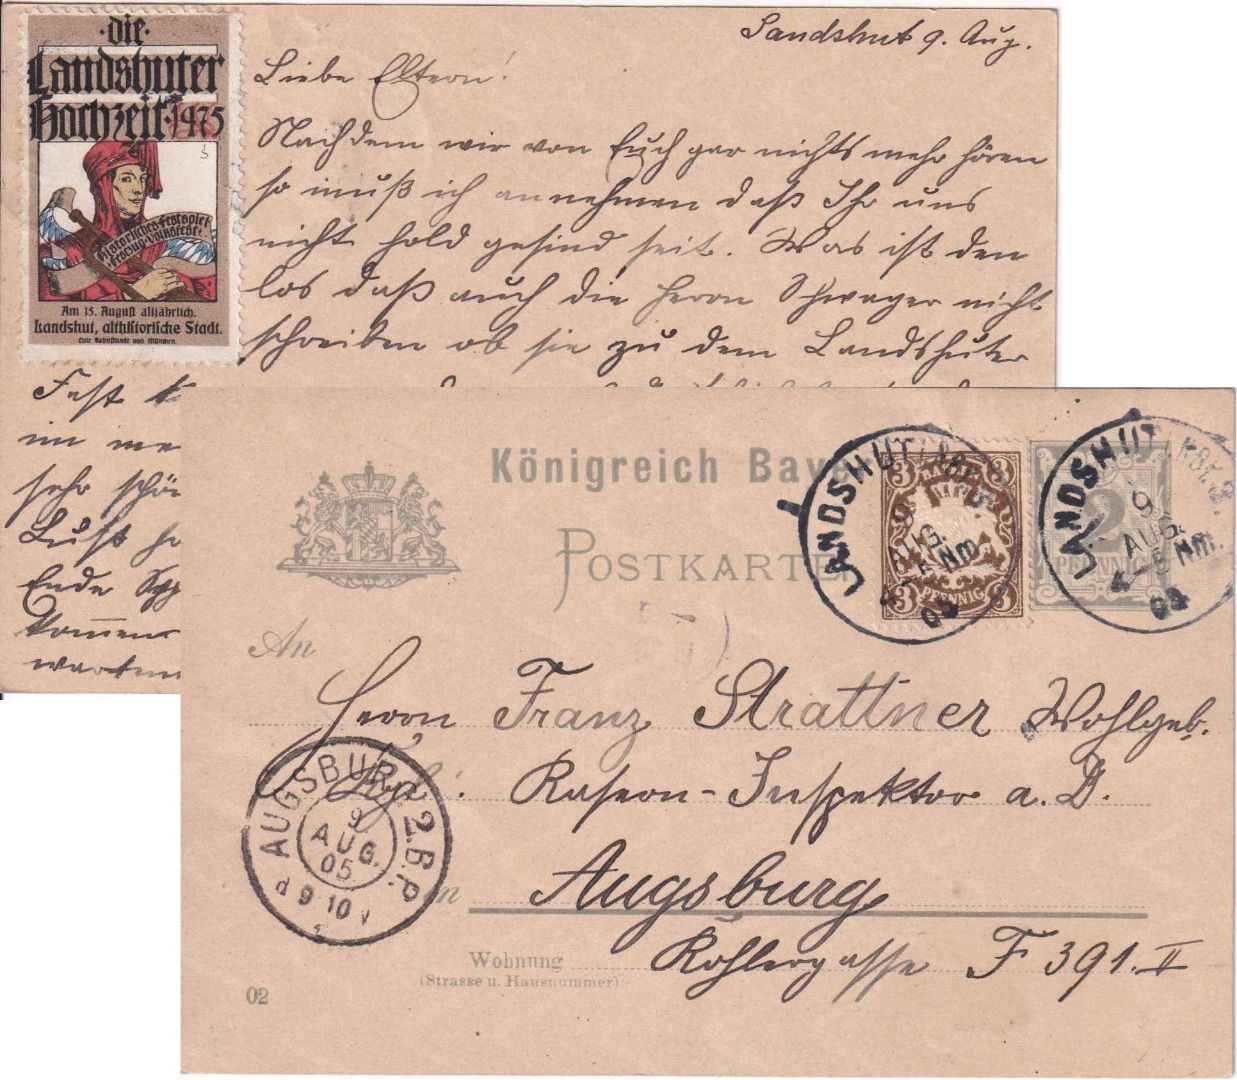 die
Landshuter
Hochzeit 1475
Historisches Festspiel
Festzug Volksfest
Am 15. August alljährlich.
Landshut, althistorische Stadt.
Eine Bahnstunde von München.
Landshut 9. Aug.
Liebe Eltern!
Nachdem wir von Euch gar nichts mehr hören
so muß ich annehmen daß Ihr uns
nicht hold gesind seit. Was ist den
los daß auch die Herrn Schwager nicht
schreiben ob sie zu dem Landshuter
Fest
im
sehr schön
Lust
Ende
kommen
warten
Königreich Bay
POSTKARTE
LANDSHUT
9
AUG.
4-5 Nm.
3 3
3 PFENNIG 3
LANDSHUT
9
AUG.
4-5 Nm.
2
PFENNIG
An
Herrn Franz Strattner Wohlgeb.
Kasern-Inspektor a. D.
AUGSBURG 2.B.P.
9
AUG.
05
9 10
in
Augsburg
Wohnung
(Strasse u. Hausnummer)
Kohlergasse F 391. II
02